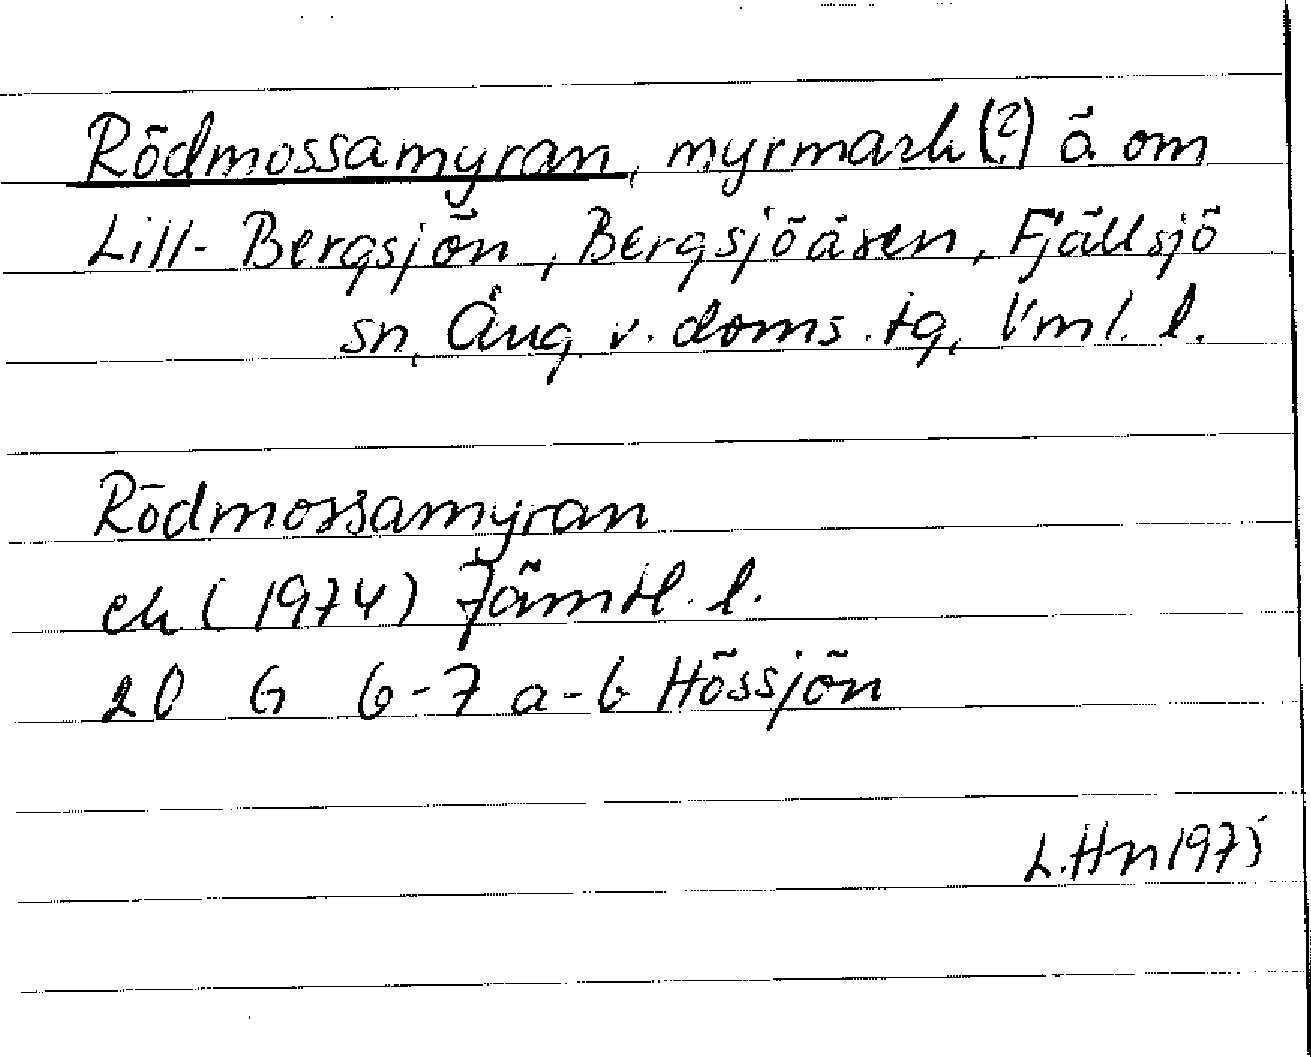 Rödmossamyran, myrmark (?) ä om
Lill-Bergsjön, Bergsjöåsen, Fjällsjö
sn, Ång. v. doms. tg, Vnrl. l.
Rödmossamyran
ek (1974) Jämtl. l.
20 G 6-7 a-b Hössjön
L.Hn 1975